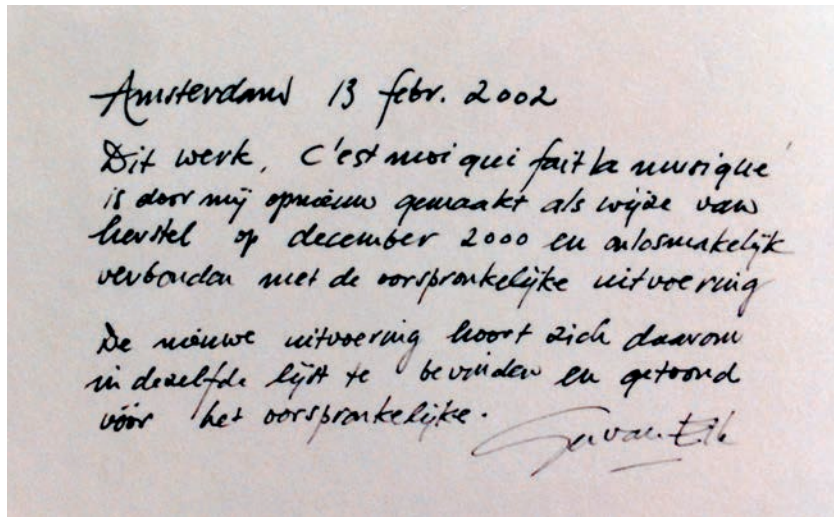 Amsterdam 13 febr. 2002
Dit werk, C'est moi qui fait la musique'
is door mij opnieuw gemaakt als wijze van
herstel op december 2000 en onlosmakelijk
verbonden met de oorspronkelijke uitvoering
De nieuwe uitvoering hoort zich daarom
in dezelfde lijst te bevinden en getoond
vóór het oorspronkelijke.
Ger van Elk